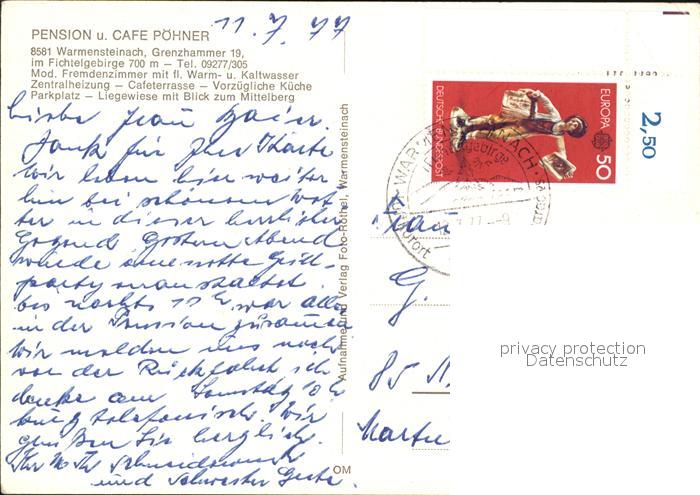 11.7.77
PENSION u. CAFE PÖHNER
8581 Warmensteinach, Grenzhammer 19,
im Fichtelgebirge 700 m — Tel. 09277/305
Mod. Fremdenzimmer mit fl. Warm- u. Kaltwasser
Zentralheizung — Cafeterrasse — Vorzügliche Küche
Parkplatz — Liegewiese mit Blick zum Mittelberg
Liebe Frau
Dank für Ihre Karte
wir leben hier weiter
hin bei schönem Wet
ter in dieser herrlichen
Gegend. Gestern Abend
wurde eine nette Grill-
party veranstaltet.
bis nachts 11 h war alles
in der Pension zusammen
Wir melden uns nach
der Rückfahrt ich
denke am Samstag
telefonisch. Wir
grüßen Sie herzlich.
Ihr
und Schwester
Aufnahme und Verlag Foto-Röthel, Warmensteinach
OM
DEUTSCHE BUNDESPOST
EUROPA
50
2,50
Frau
G.
85 N
Martin
privacy protection
Datenschutz